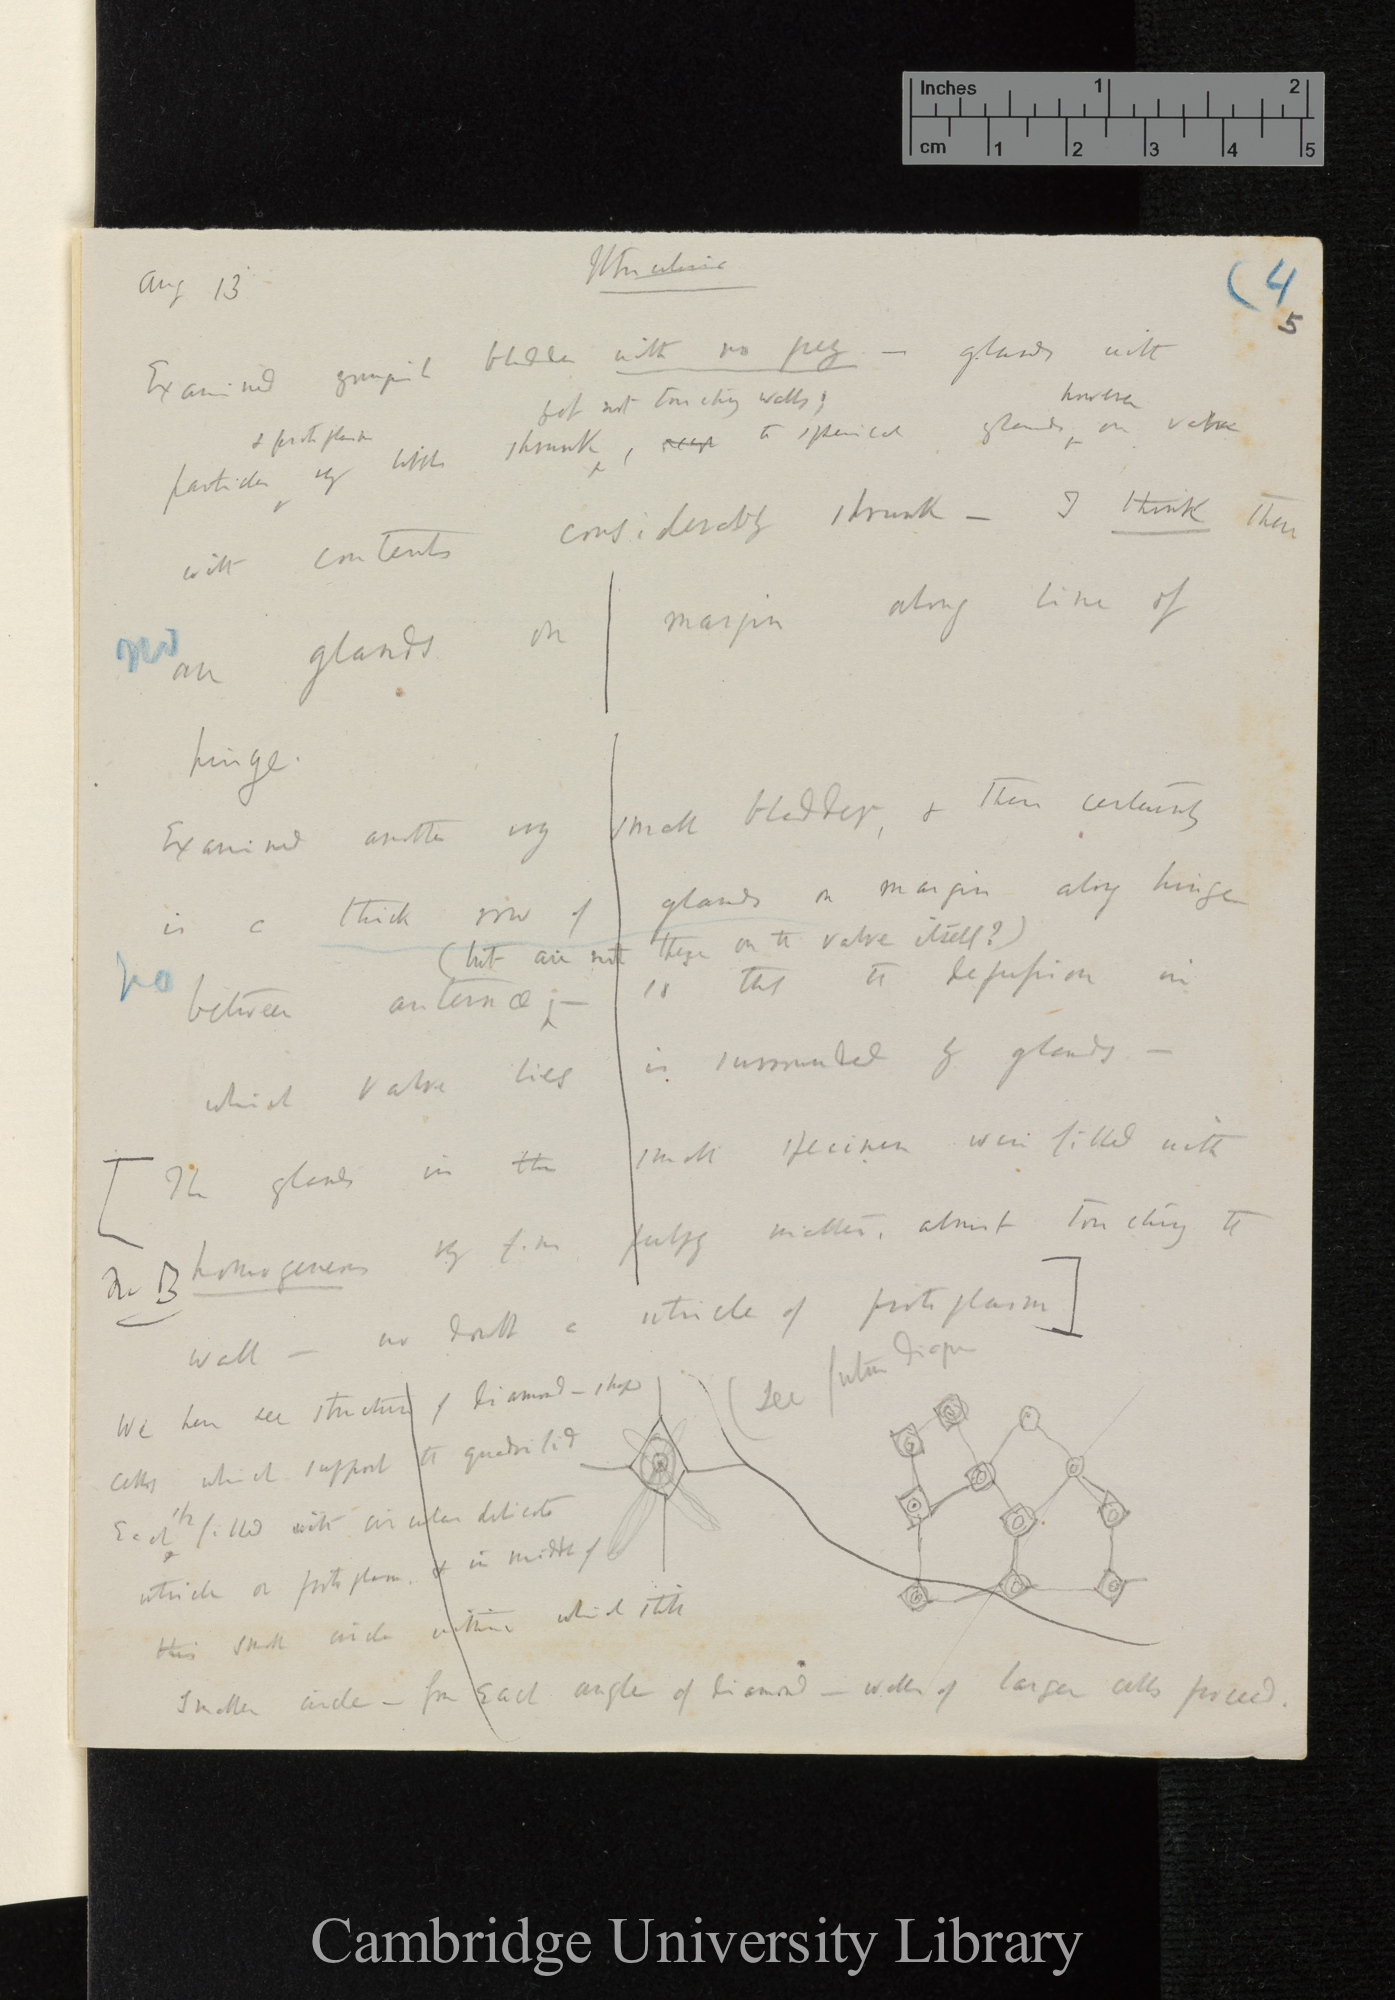 Inches 1 2
cm 1 2 3 4 5
Aug 13
Utricularia
(4
5
Examined bladder with no prey — glands with
but not touching walls;
however
& protoplasm
particles very little shrunk, to spherical glands on valve
with contents considerably shrunk — I think there
no
are glands on margin along line of
hinge.
Examined another very small bladder, & there certainly
is a thick row of glands on margin along hinge
(but are not these on the valve itself?)
no
between antennæ;— so that the depression in
which valve lies is surrounded by glands —
[The glands in the small specimen were filled with
homogeneous very fine pulpy matter, almost touching the
N B
wall — no doubt a utricle of protoplasm]
(See future diagram
We here see structure of diamond-shape
cells which support the quadrifid
Each filled with circular delicate
utricle or protoplasm & in middle of
this small circle within which still
smaller circle — from Each angle of diamond — walls of larger cells proceed.
Cambridge University Library